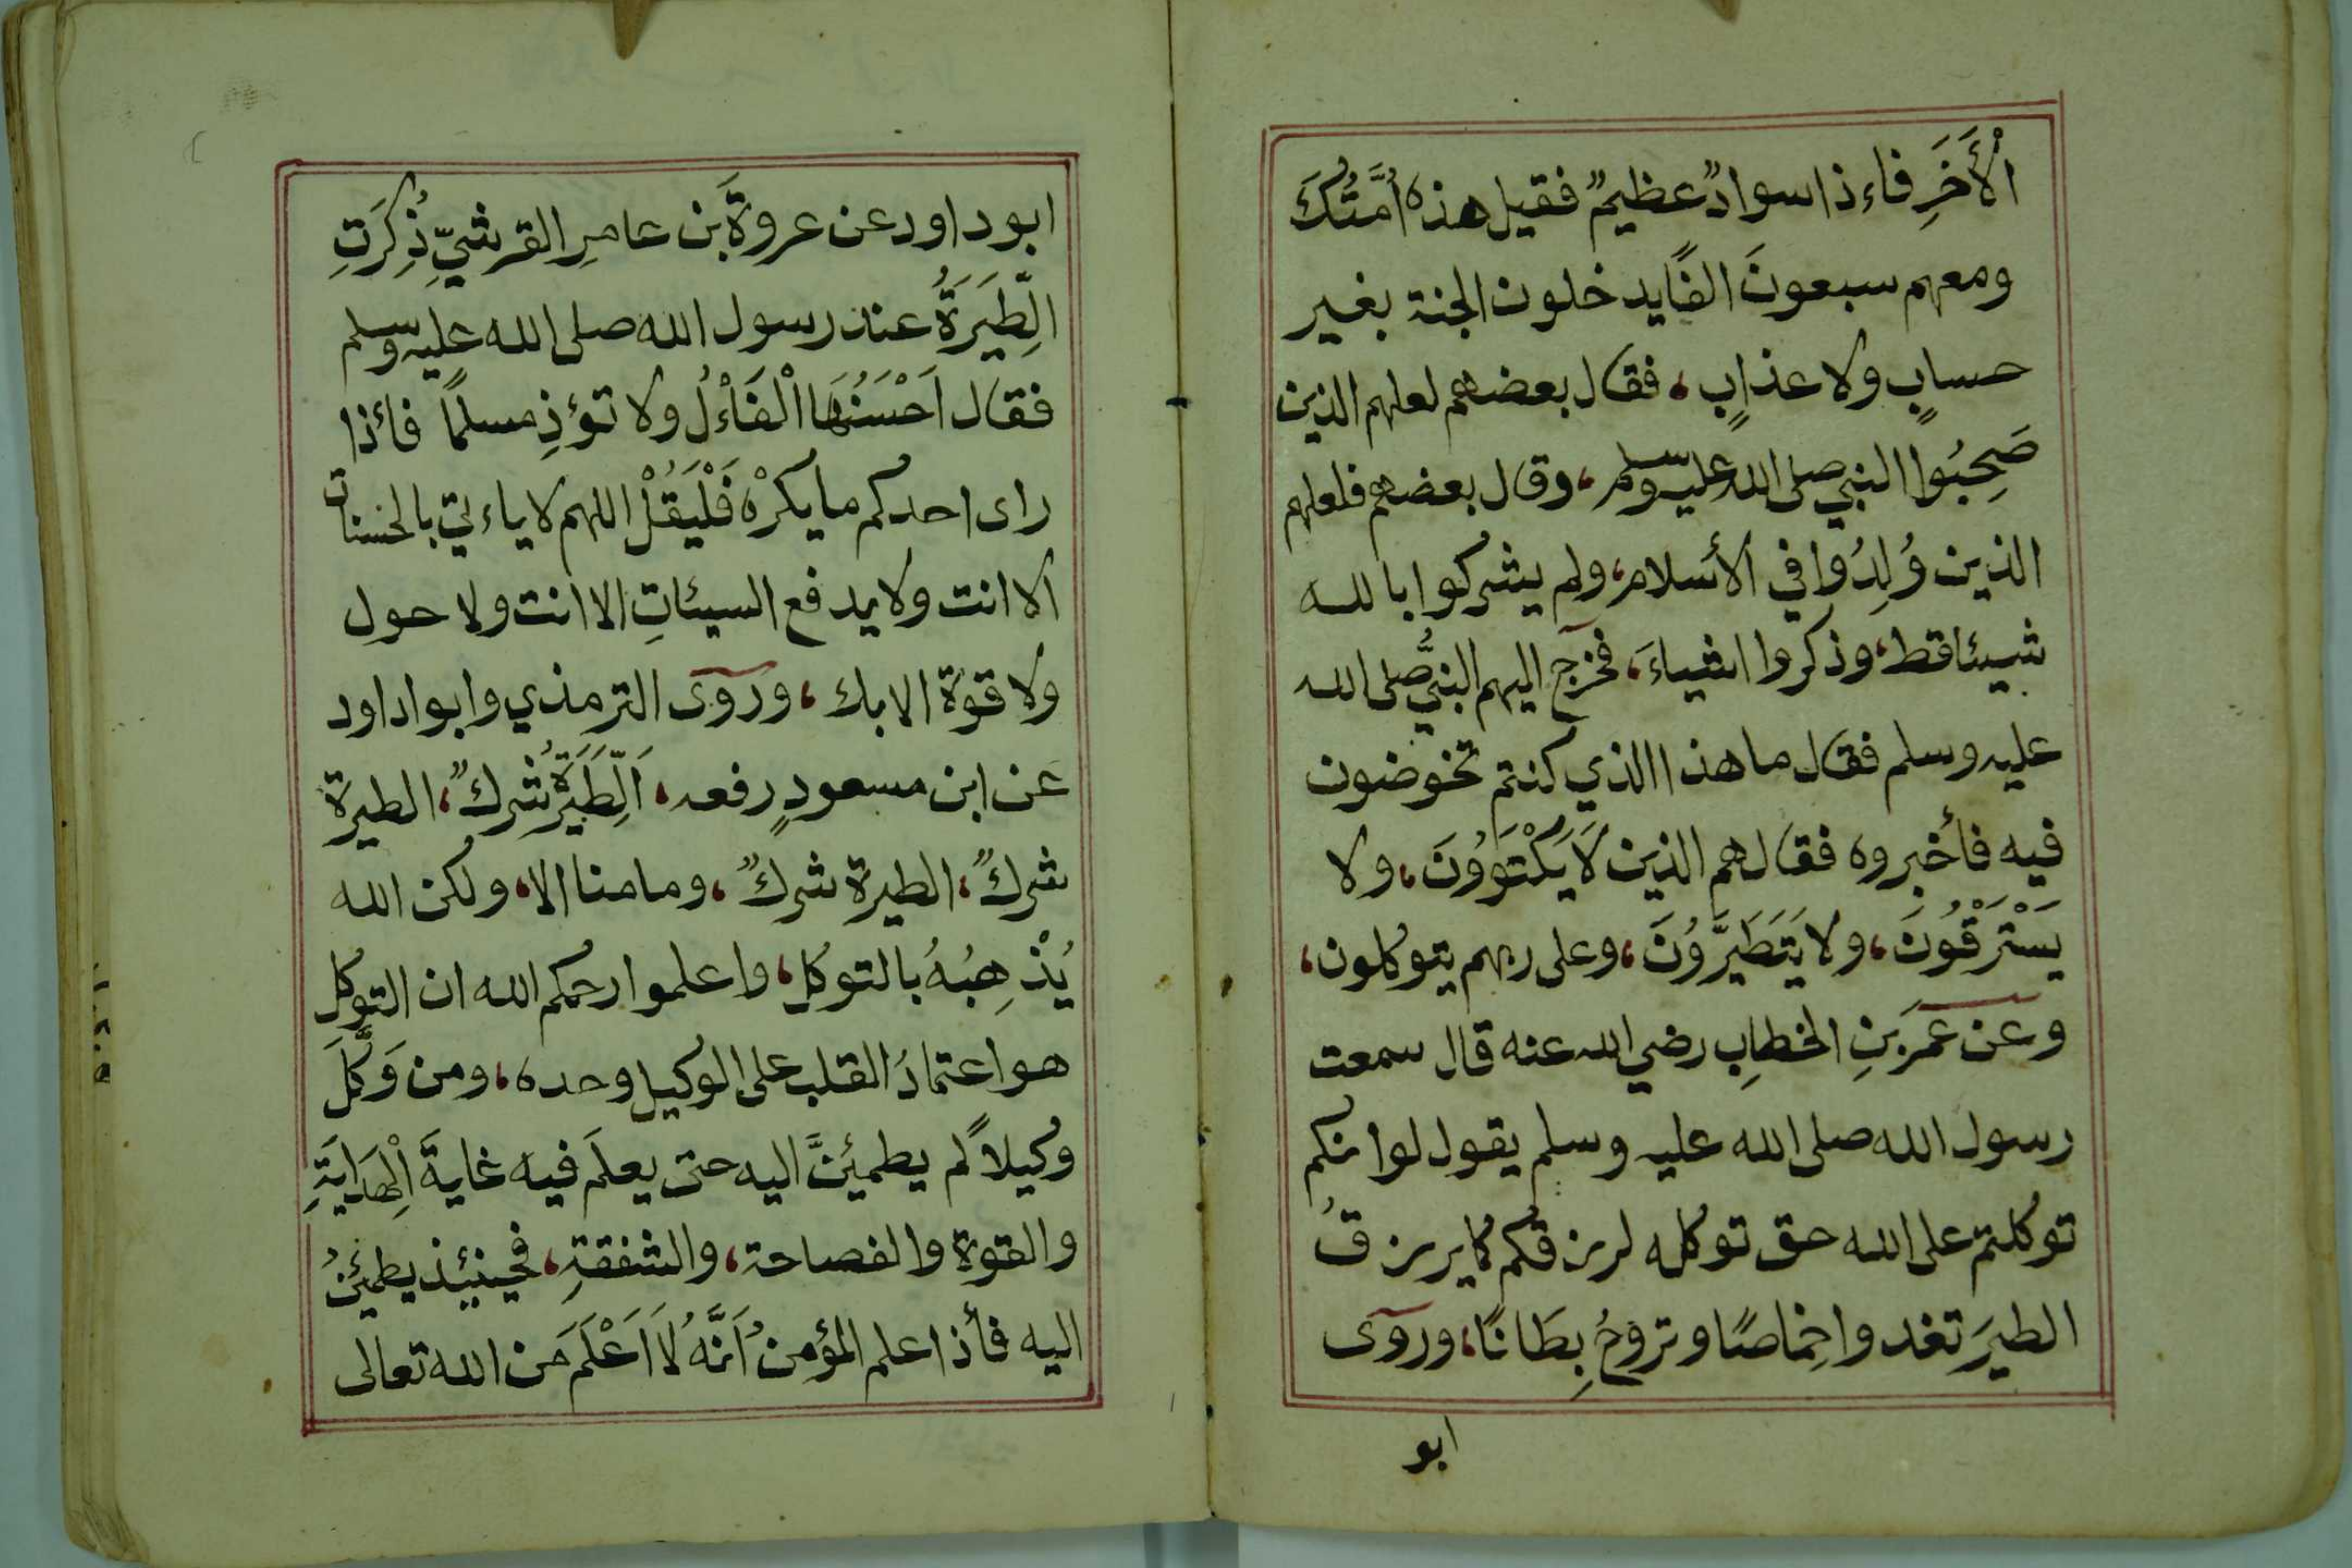 اْلأَخَرِ فاءذا سوادٌ عظيمٌ فقيل هذه اُمَّتُكَ
ومعهم سبعونَ الفًا يدخلون الجنة بغير
حسابٍ ولا عذابٍ، فقال بعضهم لعلهم الذين
صَحِبُوا النبي صلى الله عليه وسلم، وقال بعضهم فلعلهم
الذين وُلِدُوا في الأسلام، ولم يشركوا بالله
شيئا قط، وذكروا اشياءَ، فخرج اليهم النبيُّ صلى الله
عليه وسلم فقال ما هذا الذي كنتم تخوضون
فيه فأخبروه فقال هم الذين لاَ يَكْتَوُونَ، ولا
يَسْتَرْقُونَ، ولا يَتَطَيَّرُونَ، وعلى ربهم يتوكلون،
وعن عمَرَ بنِ الخطابِ رضي الله عنه قال سمعت
رسول الله صلى الله عليه وسلم يقول لوانكم
توكلتم على الله حق توكله لرزقكم كما يرزقُ
الطيرَ تغدوا خِماصًا وتروحُ بِطَانًا، وروى
ابو
ابو داود عن عروةَ بن عامرِ القرشيِّ ذُكِرَتِ
الِّطيَرَةُ عند رسول الله صلى الله عليه وسلم
فقال اَحْسَنُهَا اْلفَاْءلُ ولا تؤذِ مسلمًا فائذا
راى احدكم ما يكرْه فَلْيَقُلْ اللهم لا ياءتي بالحسنات
الا انت ولا يدفع السيئاتِ الا انت ولا حول
ولا قوة الا بك، وروى الترمذي وابوا داود
عن ابن مسعودٍ رفعه، اَلِّطَيَرَةُ شركٌ، الطيرة
شركٌ، الطيرة شركٌ، وما منا الا، ولكن الله
يُذْهِبُهُ بالتوكل، واعلموا رحمكم الله ان التوكل
هو اعتمادُ القلب على الوكيل وحده، ومن وَكَّلَ
وكيلاً لم يطمئنَّ اليه حتى يعلَم فيه غايةَ اْلهِدَايَةِ
والقوة والفصاحة، والشفقةِ، فحينئيذ يطمئنُ
اليه فأذا علم المؤمنُ اَنَّهُ لاَ اَعْلَمَ من الله تعالى